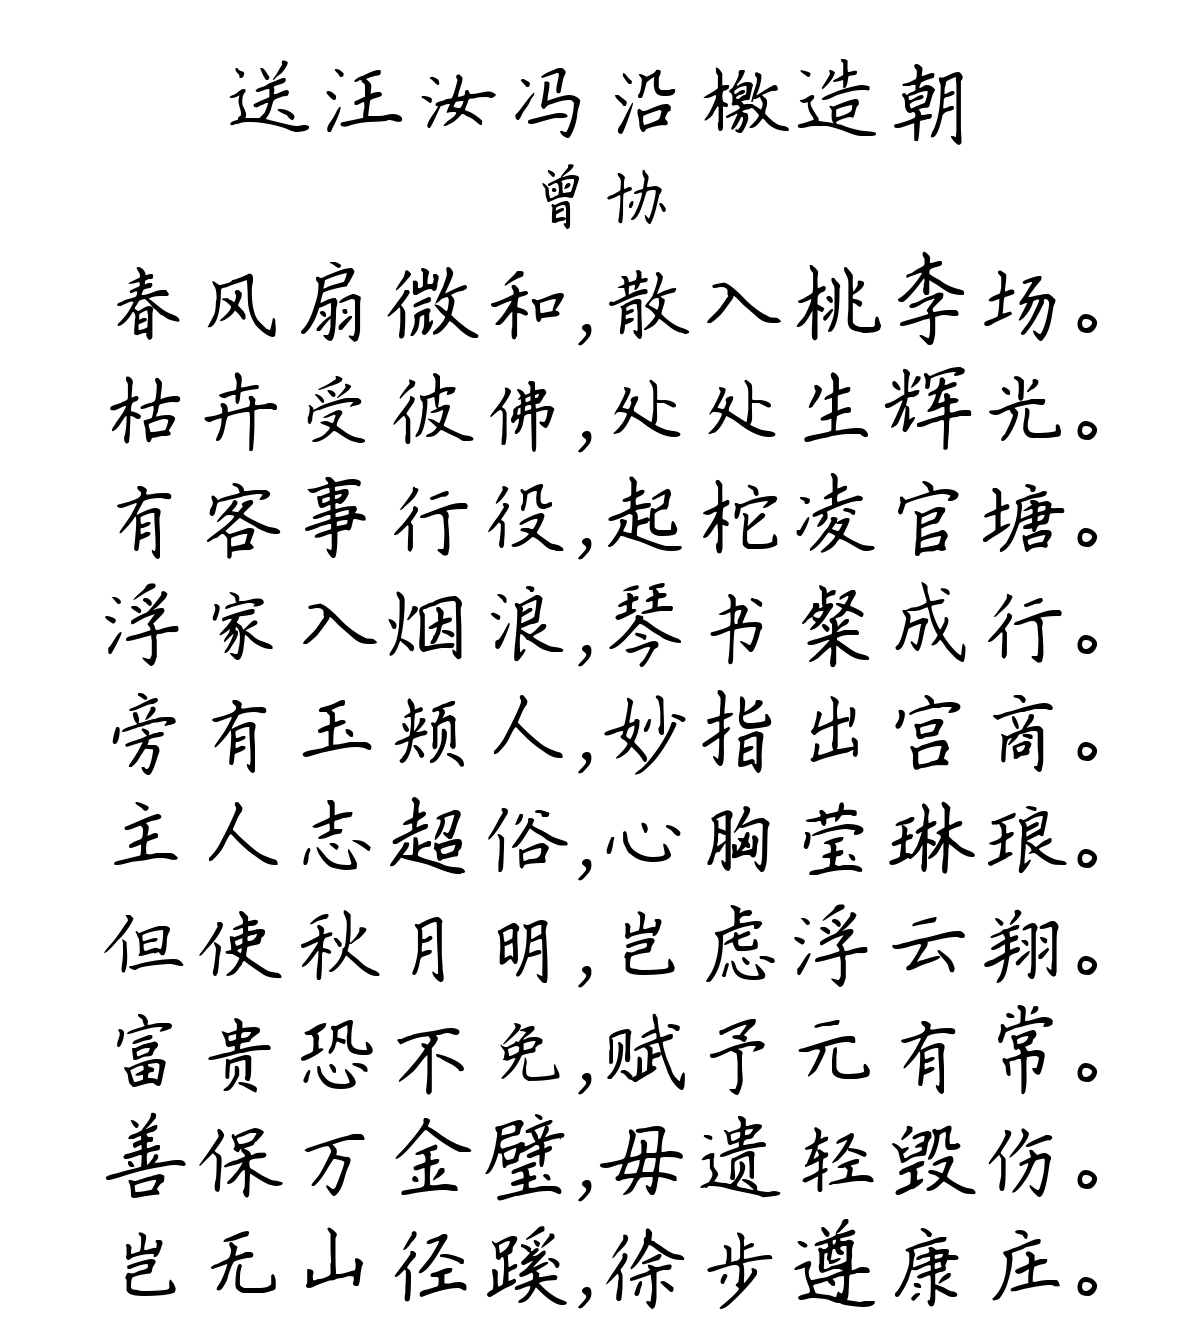 送汪汝冯沿檄造朝
曾协
春风扇微和,散入桃李场。
枯卉受彼佛,处处生辉光。
有客事行役,起柁凌官塘。
浮家入烟浪,琴书粲成行。
旁有玉颊人,妙指出宫商。
主人志超俗,心胸莹琳琅。
但使秋月明,岂虑浮云翔。
富贵恐不免,赋予元有常。
善保万金璧,毋遗轻毁伤。
岂无山径蹊,徐步遵康庄。